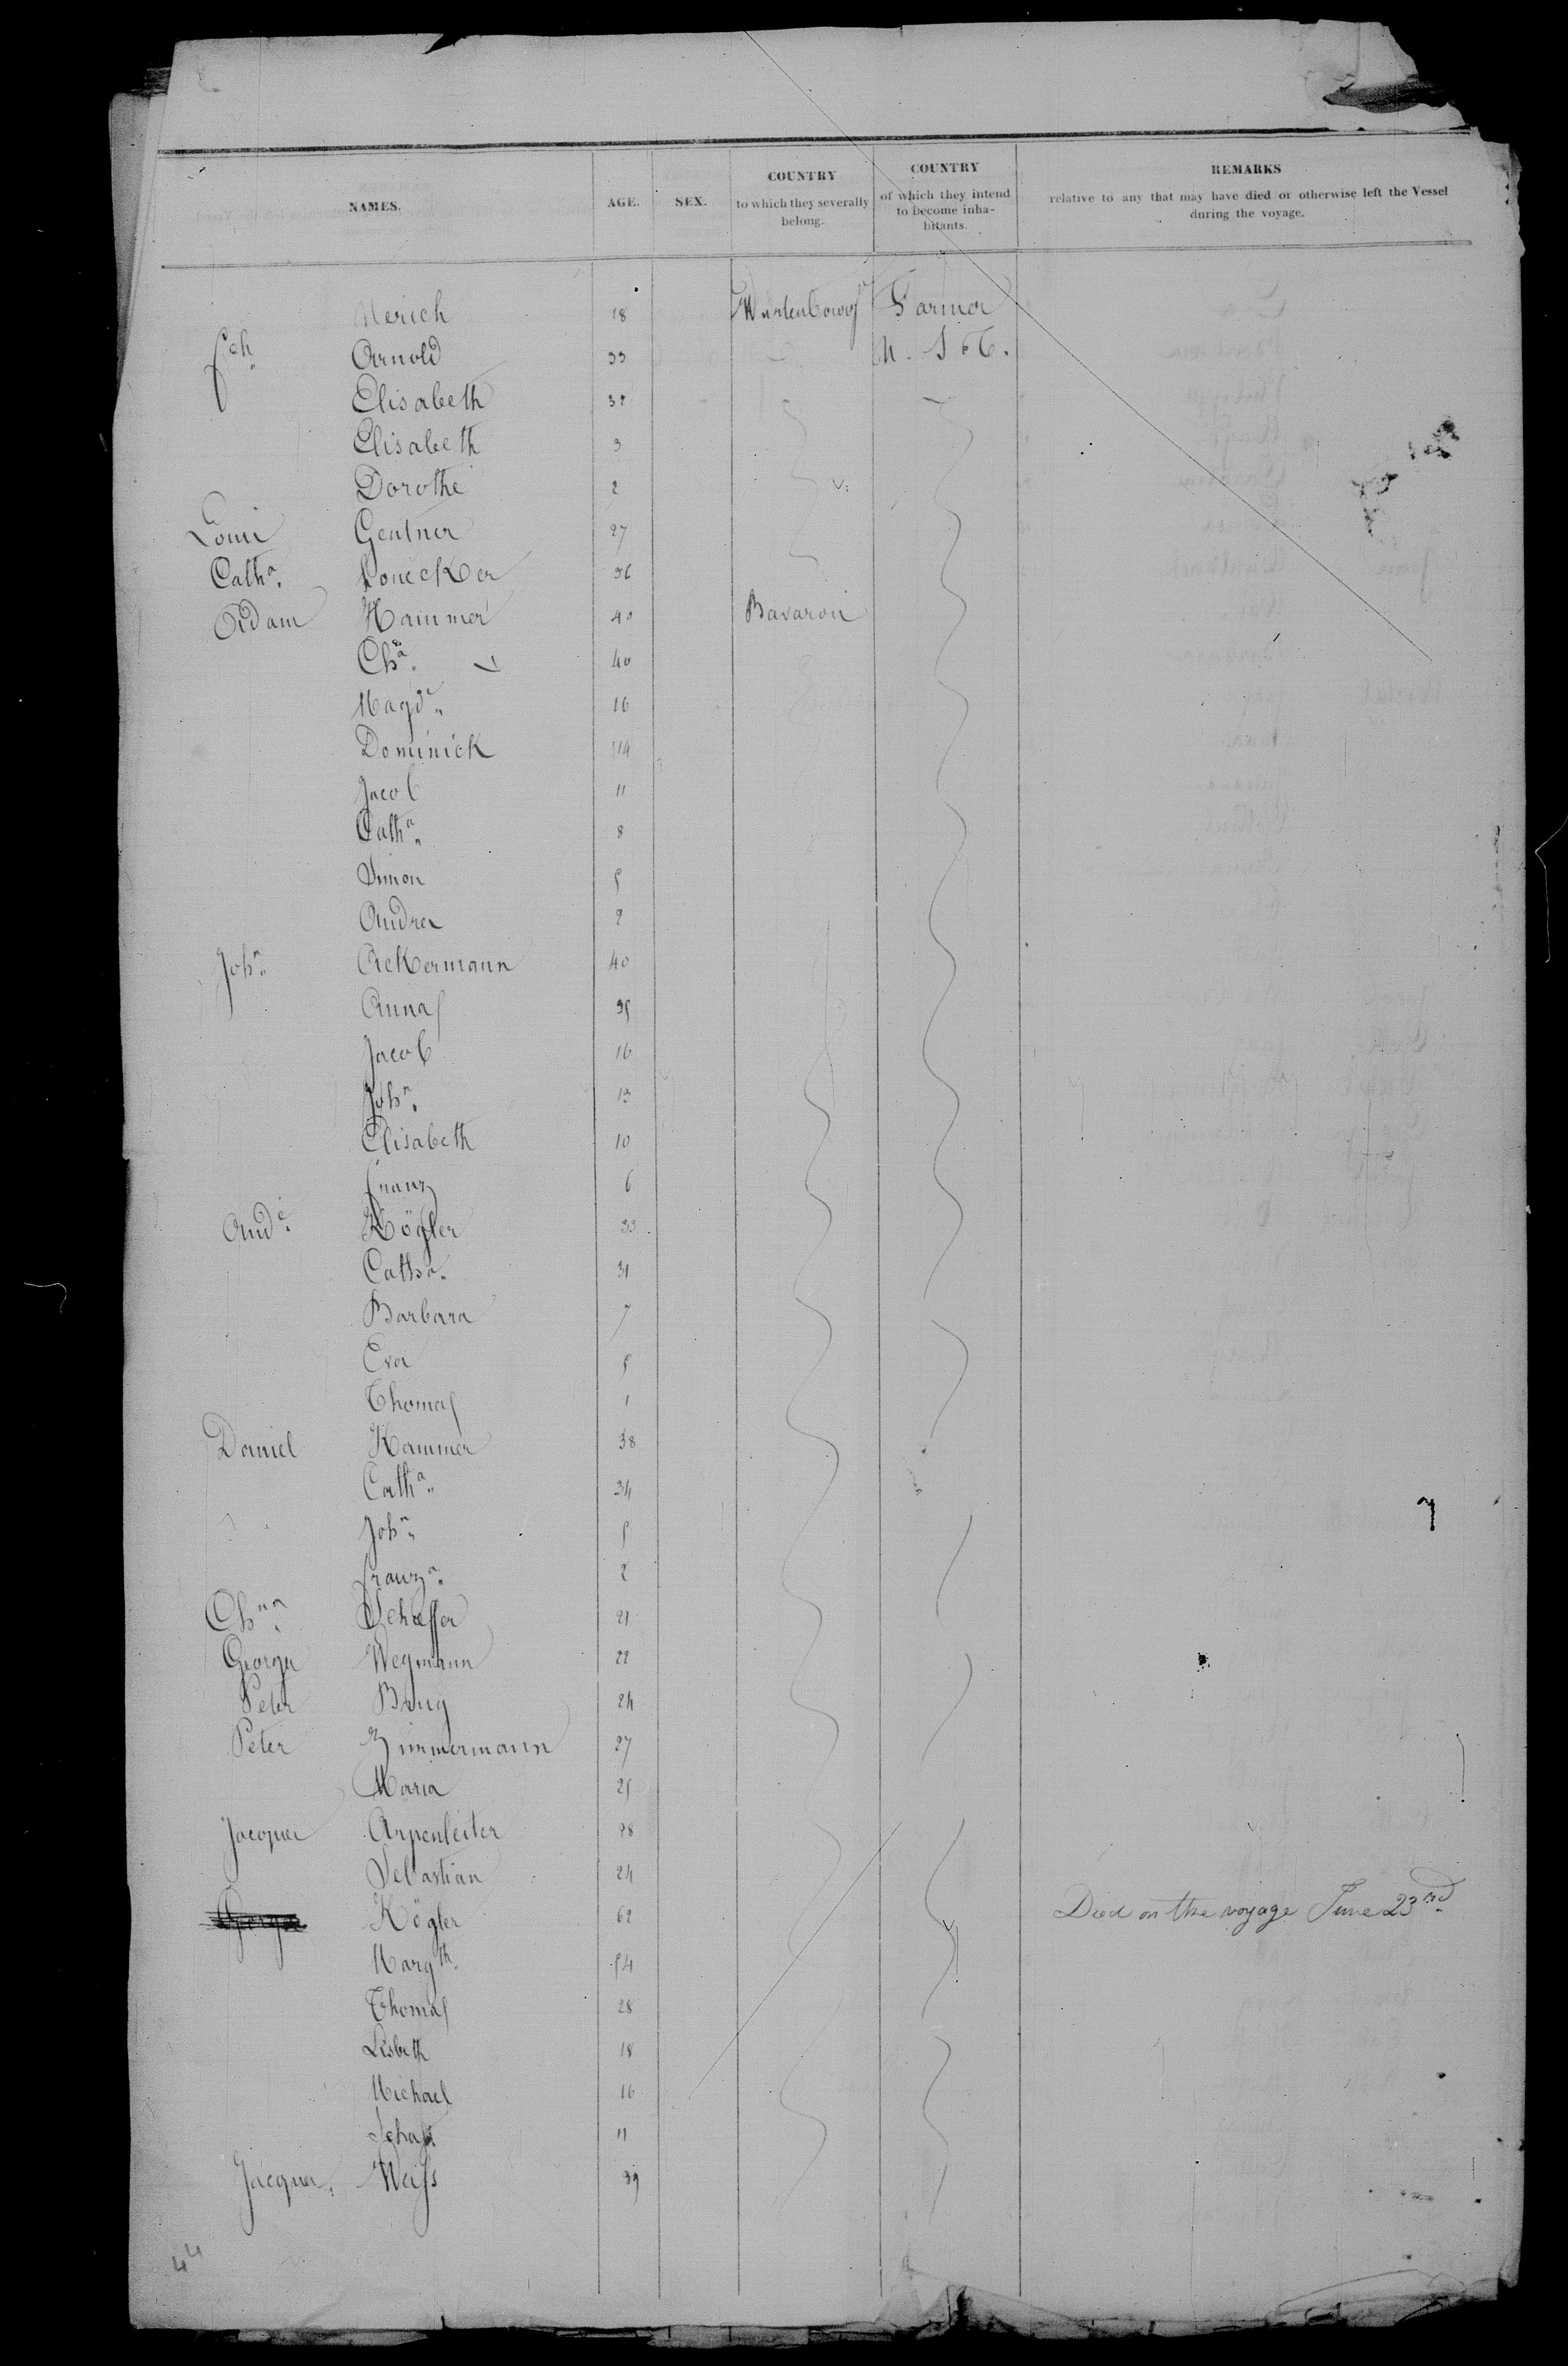 NAMES. AGE. SEX. COUNTRY to which they severally belong. COUNTRY of which they intend to become inhabitants. REMARKS relative to any that may have died or otherwise left the Vessel during the voyage.
Merich 18 Farmer
Arnold 33
Elisabeth 32
Elisabeth 3
Dorothe 2
Loui Gentner 27
Catha. 36
Adam Hammer 40 Bavaroi
Cha. 40
Magd. 16
Dominick 14
Jacob 11
Catha. 8
Simon 5
Andrea 2
John. Ackermann 40
Annas 35
Jacob 16
John. 13
Elisabeth 10
Franz 6
Ande. Kögler 33
Catha. 31
Barbara 7
Eva 5
Thomas 1
Daniel Kammer 38
Catha. 34
John. 5
Franza. 2
Chna. Scheffer 21
George Wegmann 22
Peter 24
Peter Zimmermann 27
Maria 25
Jacque Arpenleiter 28
Sebastian 24
Kögler 62 Died on the voyage June 23rd.
Margth. 54
Thomas 28
Lisbeth 18
Michael 16
11
Jacque. Weiss 39
44